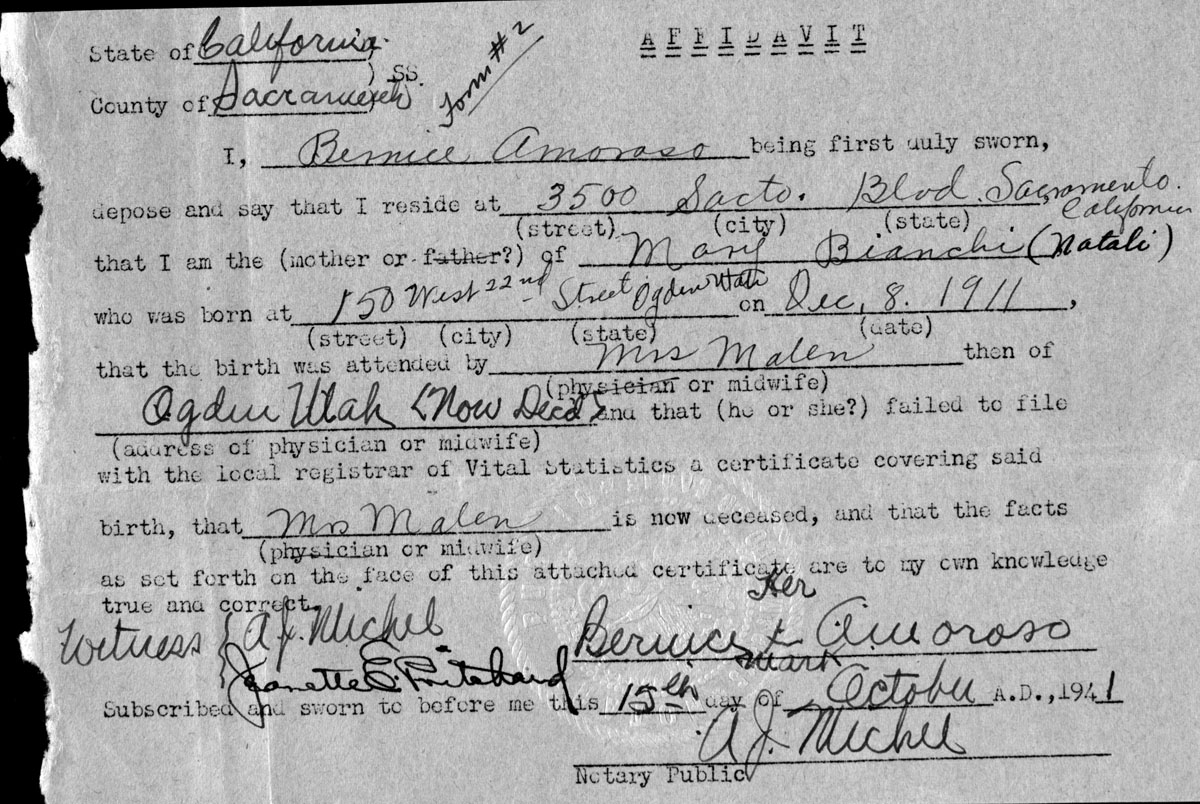 AFFIDAVIT
State of California )
Form #2
) SS.
County of Sacramento )
I, Bernice Amoroso being first duly sworn,
depose and say that I reside at 3500 Sacto. Blvd. Sacramento. California
(street) (city) (state)
that I am the (mother or father?) of Mary Bianchi (Natali)
who was born at 150 West 22nd Street Ogden Utah on Dec, 8. 1911,
(street) (city) (state) (date)
that the birth was attended by Mrs Malen then of
(physician or midwife)
Ogden Utah (Now Decd) and that (he or she?) failed to file
(address of physician or midwife)
with the local registrar of Vital Statistics a certificate covering said
birth, that Mrs Malen is now deceased, and that the facts
(physician or midwife)
as set forth on the face of this attached certificate are to my own knowledge
true and correct.
Her
Witness { A. J. Michel
Bernice x Amoroso
mark
Jeanette E. Pritchard
Subscribed and sworn to before me this 15th day of October A.D., 1941
A. J. Michel
Notary Public